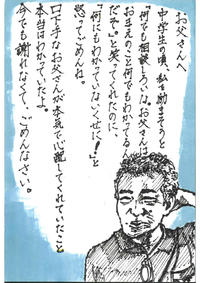 お父さんへ
中学生の頃、私を励まそうと
「何でも相談しろいな。お父さんは
おまえのこと何でもわかってる
だぞ。」と笑ってくれたのに、
「何にもわかっていないくせに！」と
怒ってごめんね。
口下手なお父さんが本気で心配してくれていたこと
本当はわかっていたよ。
今でも謝れなくて、ごめんなさい。